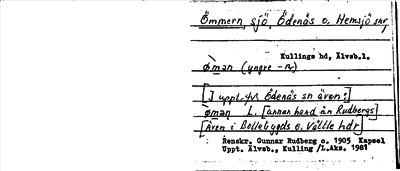 Ömmern, sjö, Ödenäs o. Hemsjö snr
Kullings hd, Älvsb.l.
ømən (yngre -n)
[I uppt. fr. Ödenäs sn även:]
ømən L. [annan hand än Rudbergs]
[Även i Bollebygds o. Vättle hdr]
Renskr. Gunnar Rudberg o. 1905 Kapsel
Uppt. Älvsb., Kulling /L.Aks. 1981